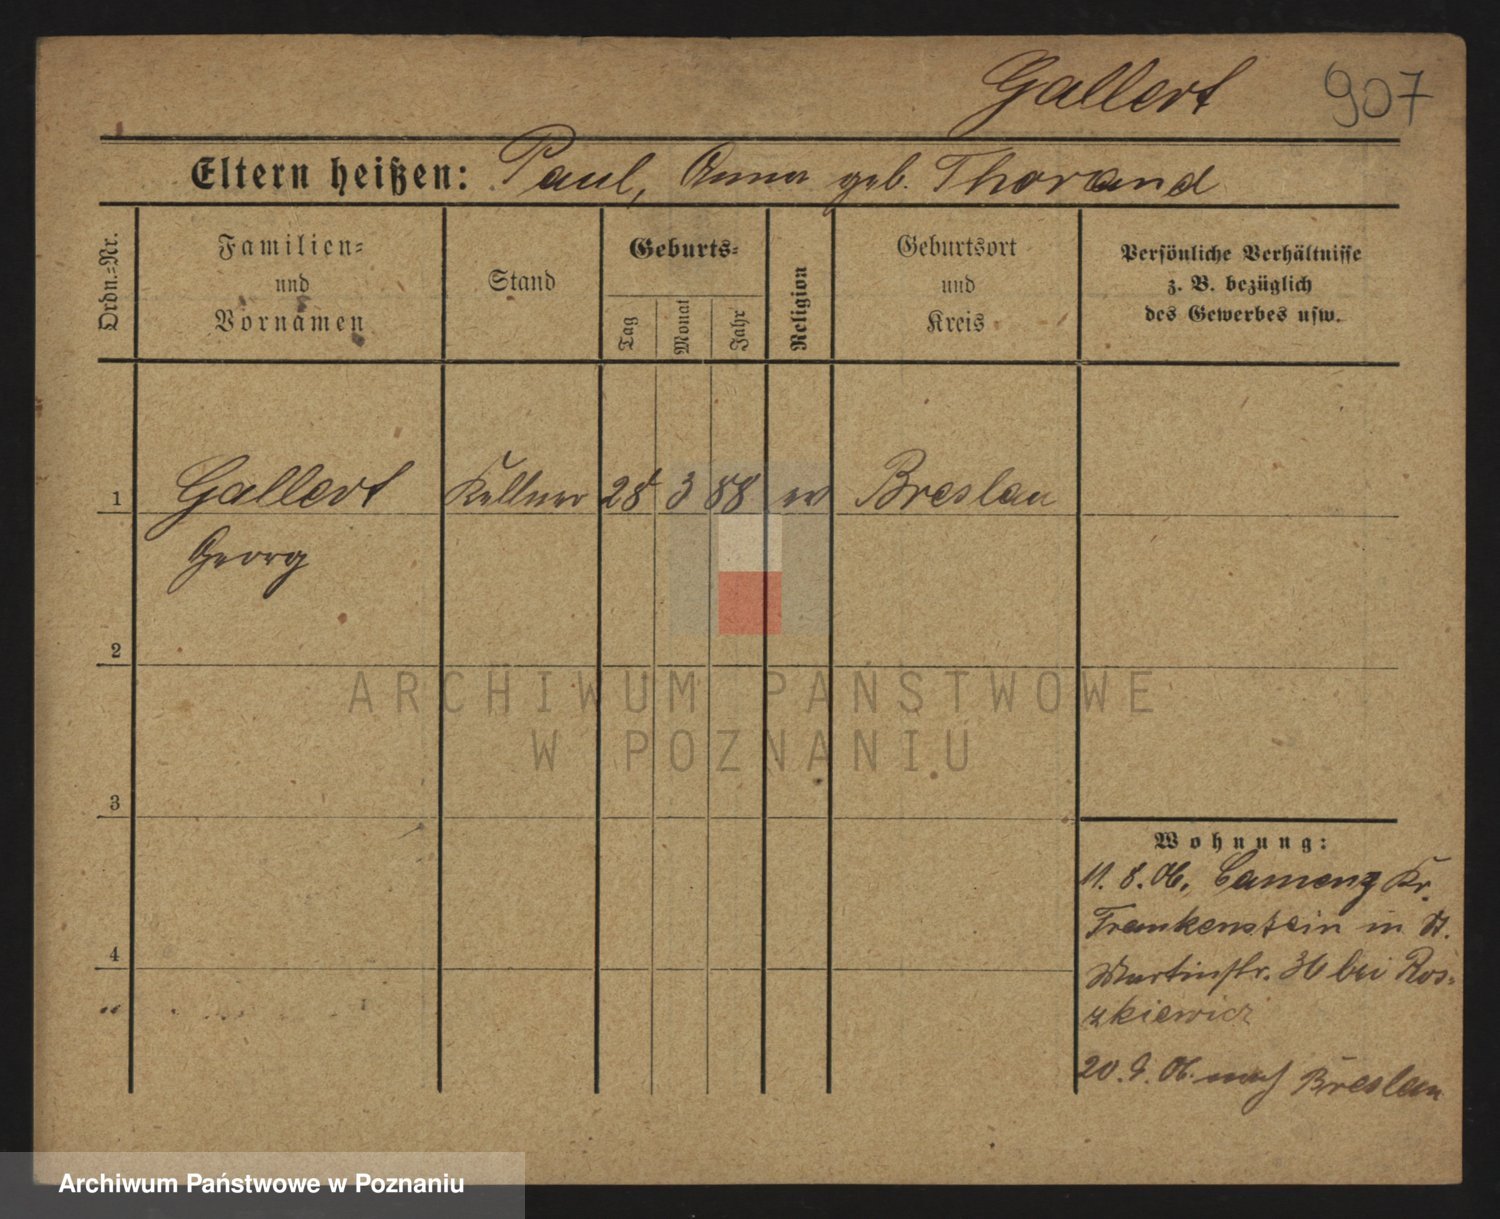 Gallert 907
Eltern heißen: Paul, Anna geb. Thorand
Ordn.=Nr.
Familien=
und
Vornamen
Stand
Geburts=
Tag
Monat
Jahr
Religion
Geburtsort
und
Kreis
Persönliche Verhältnisse
z. B. bezüglich
des Gewerbes usw.
1 Gallert Kellner 28 3 88 ev Breslau
Georg
2
3
4
Wohnung:
11. 8. 06. Camenz Kr.
Frankenstein in St.
Martinstr. 36 bei Ros=
zkiewicz
20. 9. 06. nach Breslau
ARCHIWUM PAŃSTWOWE
W POZNANIU
Archiwum Państwowe w Poznaniu